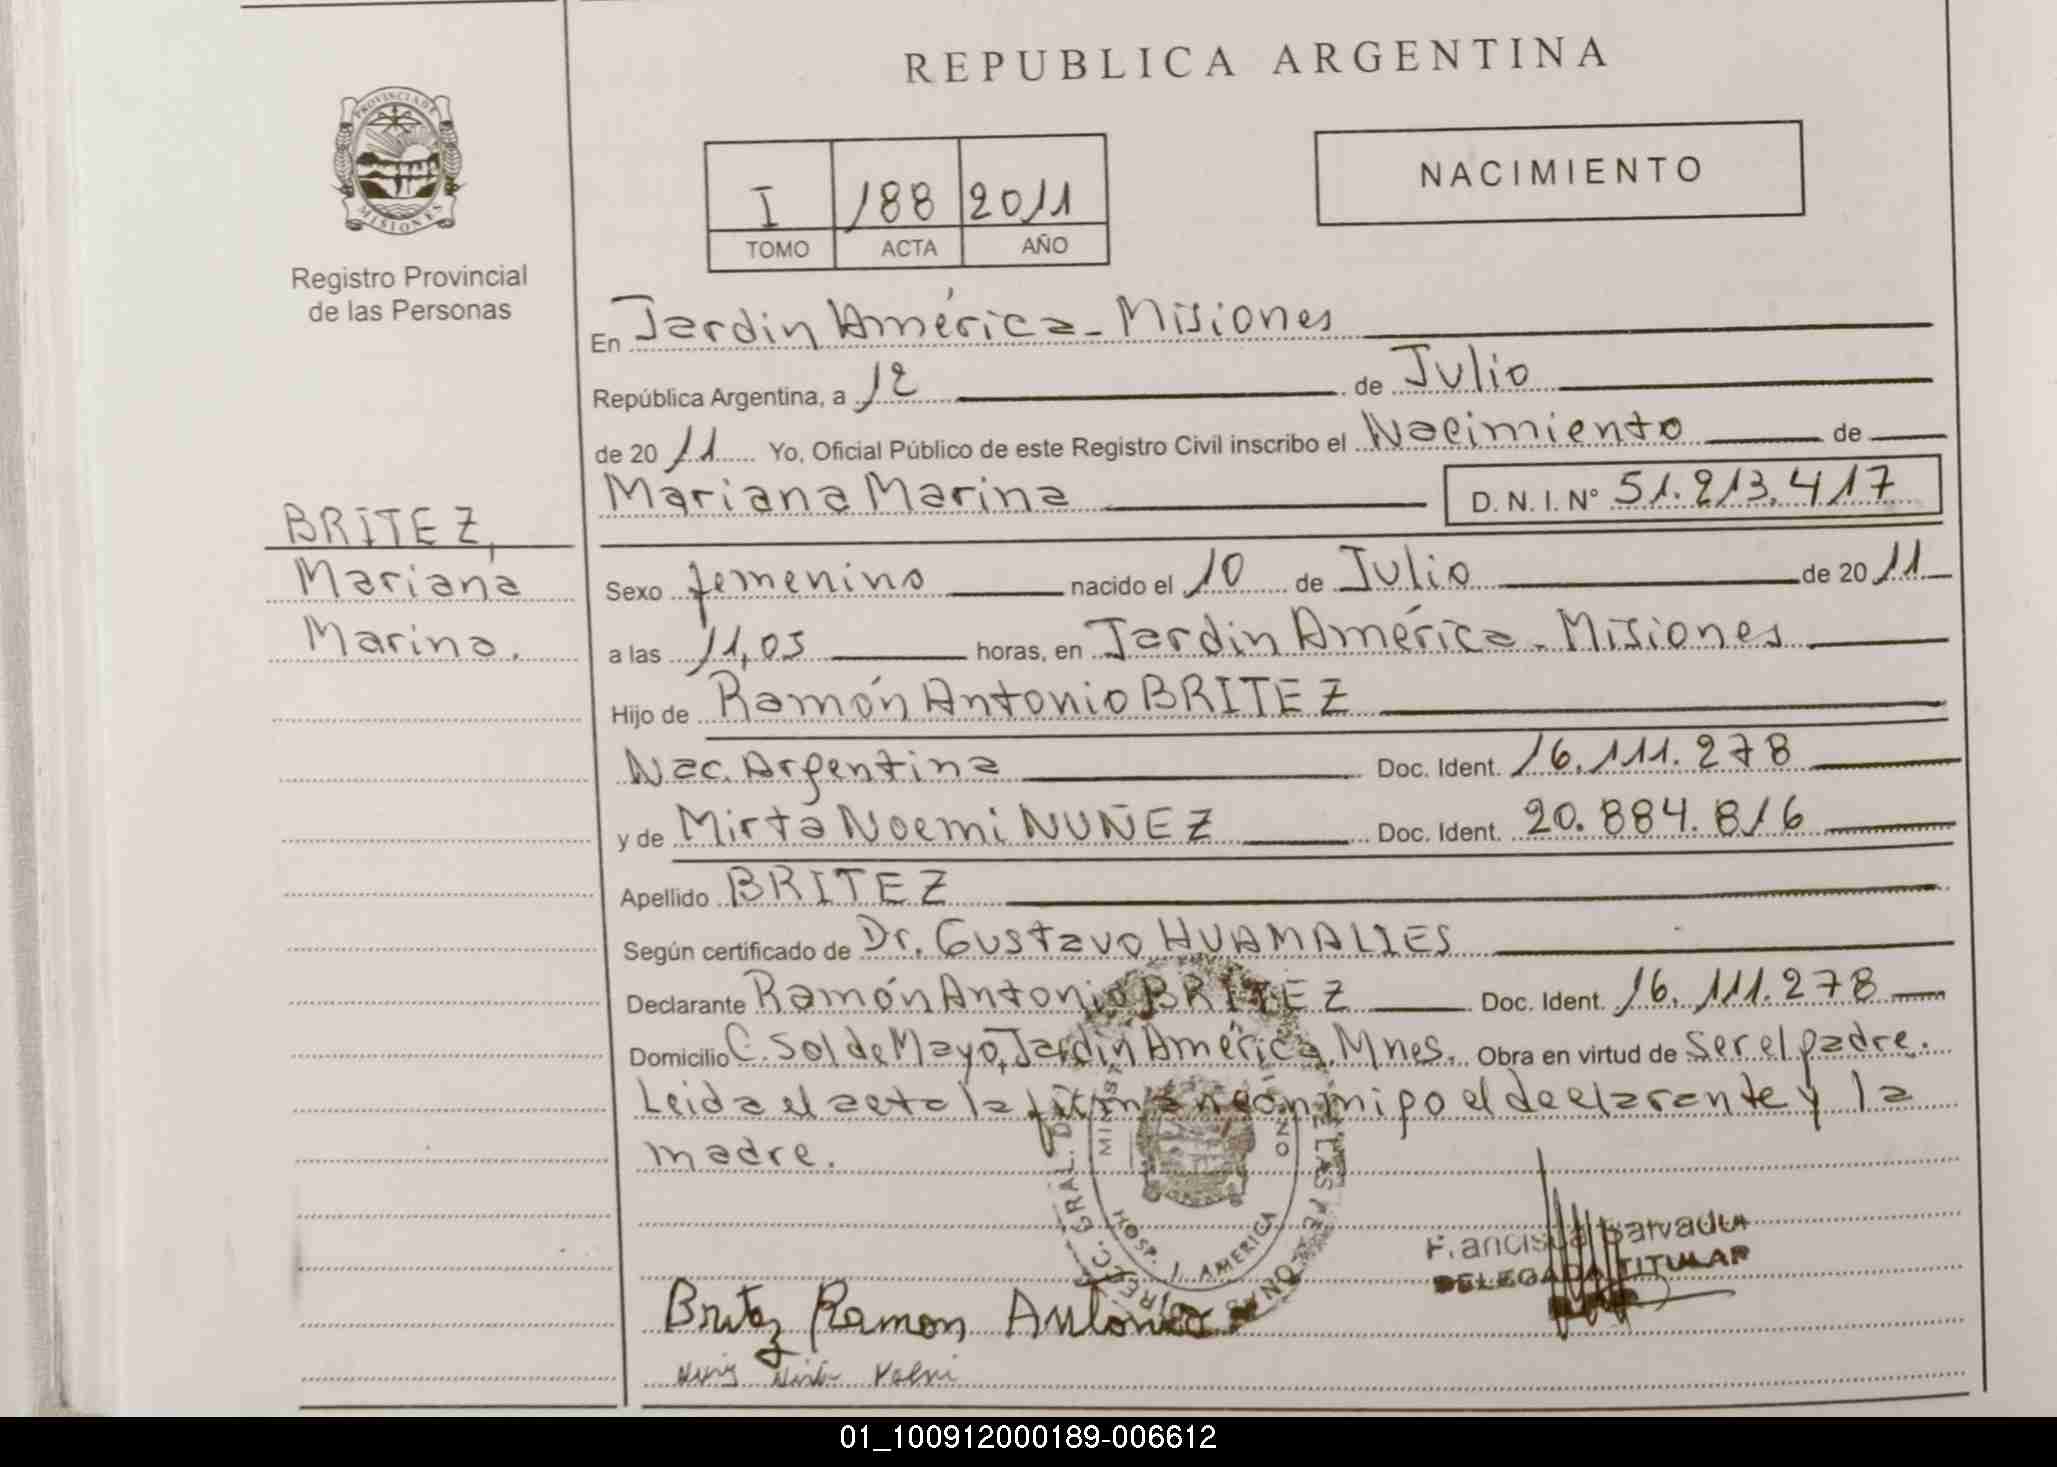 REPUBLICA ARGENTINA
PROVINCIA DE
MISIONES
Registro Provincial
de las Personas
I 188 2011
TOMO ACTA AÑO
NACIMIENTO
En Jardin América - Misiones
República Argentina, a 12 de Julio
de 2011 Yo, Oficial Público de este Registro Civil inscribo el Nacimiento de
Mariana Marina D. N. I. N° 51.213.417
BRITEZ,
Mariana
Marina.
Sexo femenino nacido el 10 de Julio de 2011
a las 11,05 horas, en Jardin América - Misiones
Hijo de Ramón Antonio BRITEZ
Nac. Argentina Doc. Ident. 16.111.278
y de Mirta Noemi NUÑEZ Doc. Ident. 20.884.816
Apellido BRITEZ
Según certificado de Dr. Gustavo HUAMALIES
Declarante Ramón Antonio BRITEZ Doc. Ident. 16.111.278
Domicilio C. Sol de Mayo, Jardin América, Mnes. Obra en virtud de ser el padre.
Leida el acta la firman conmigo el declarante y la
madre.
HOSP. J. AMERICA
DELEGADA TITULAR
Britez Ramon Antonio
01_100912000189-006612